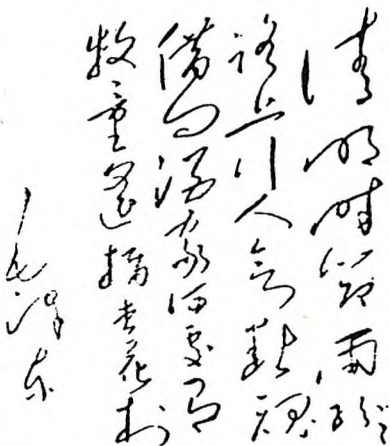 清明時節雨紛々
路上行人欲斷魂
借问酒家何處有
牧童遥指杏花村
毛澤东